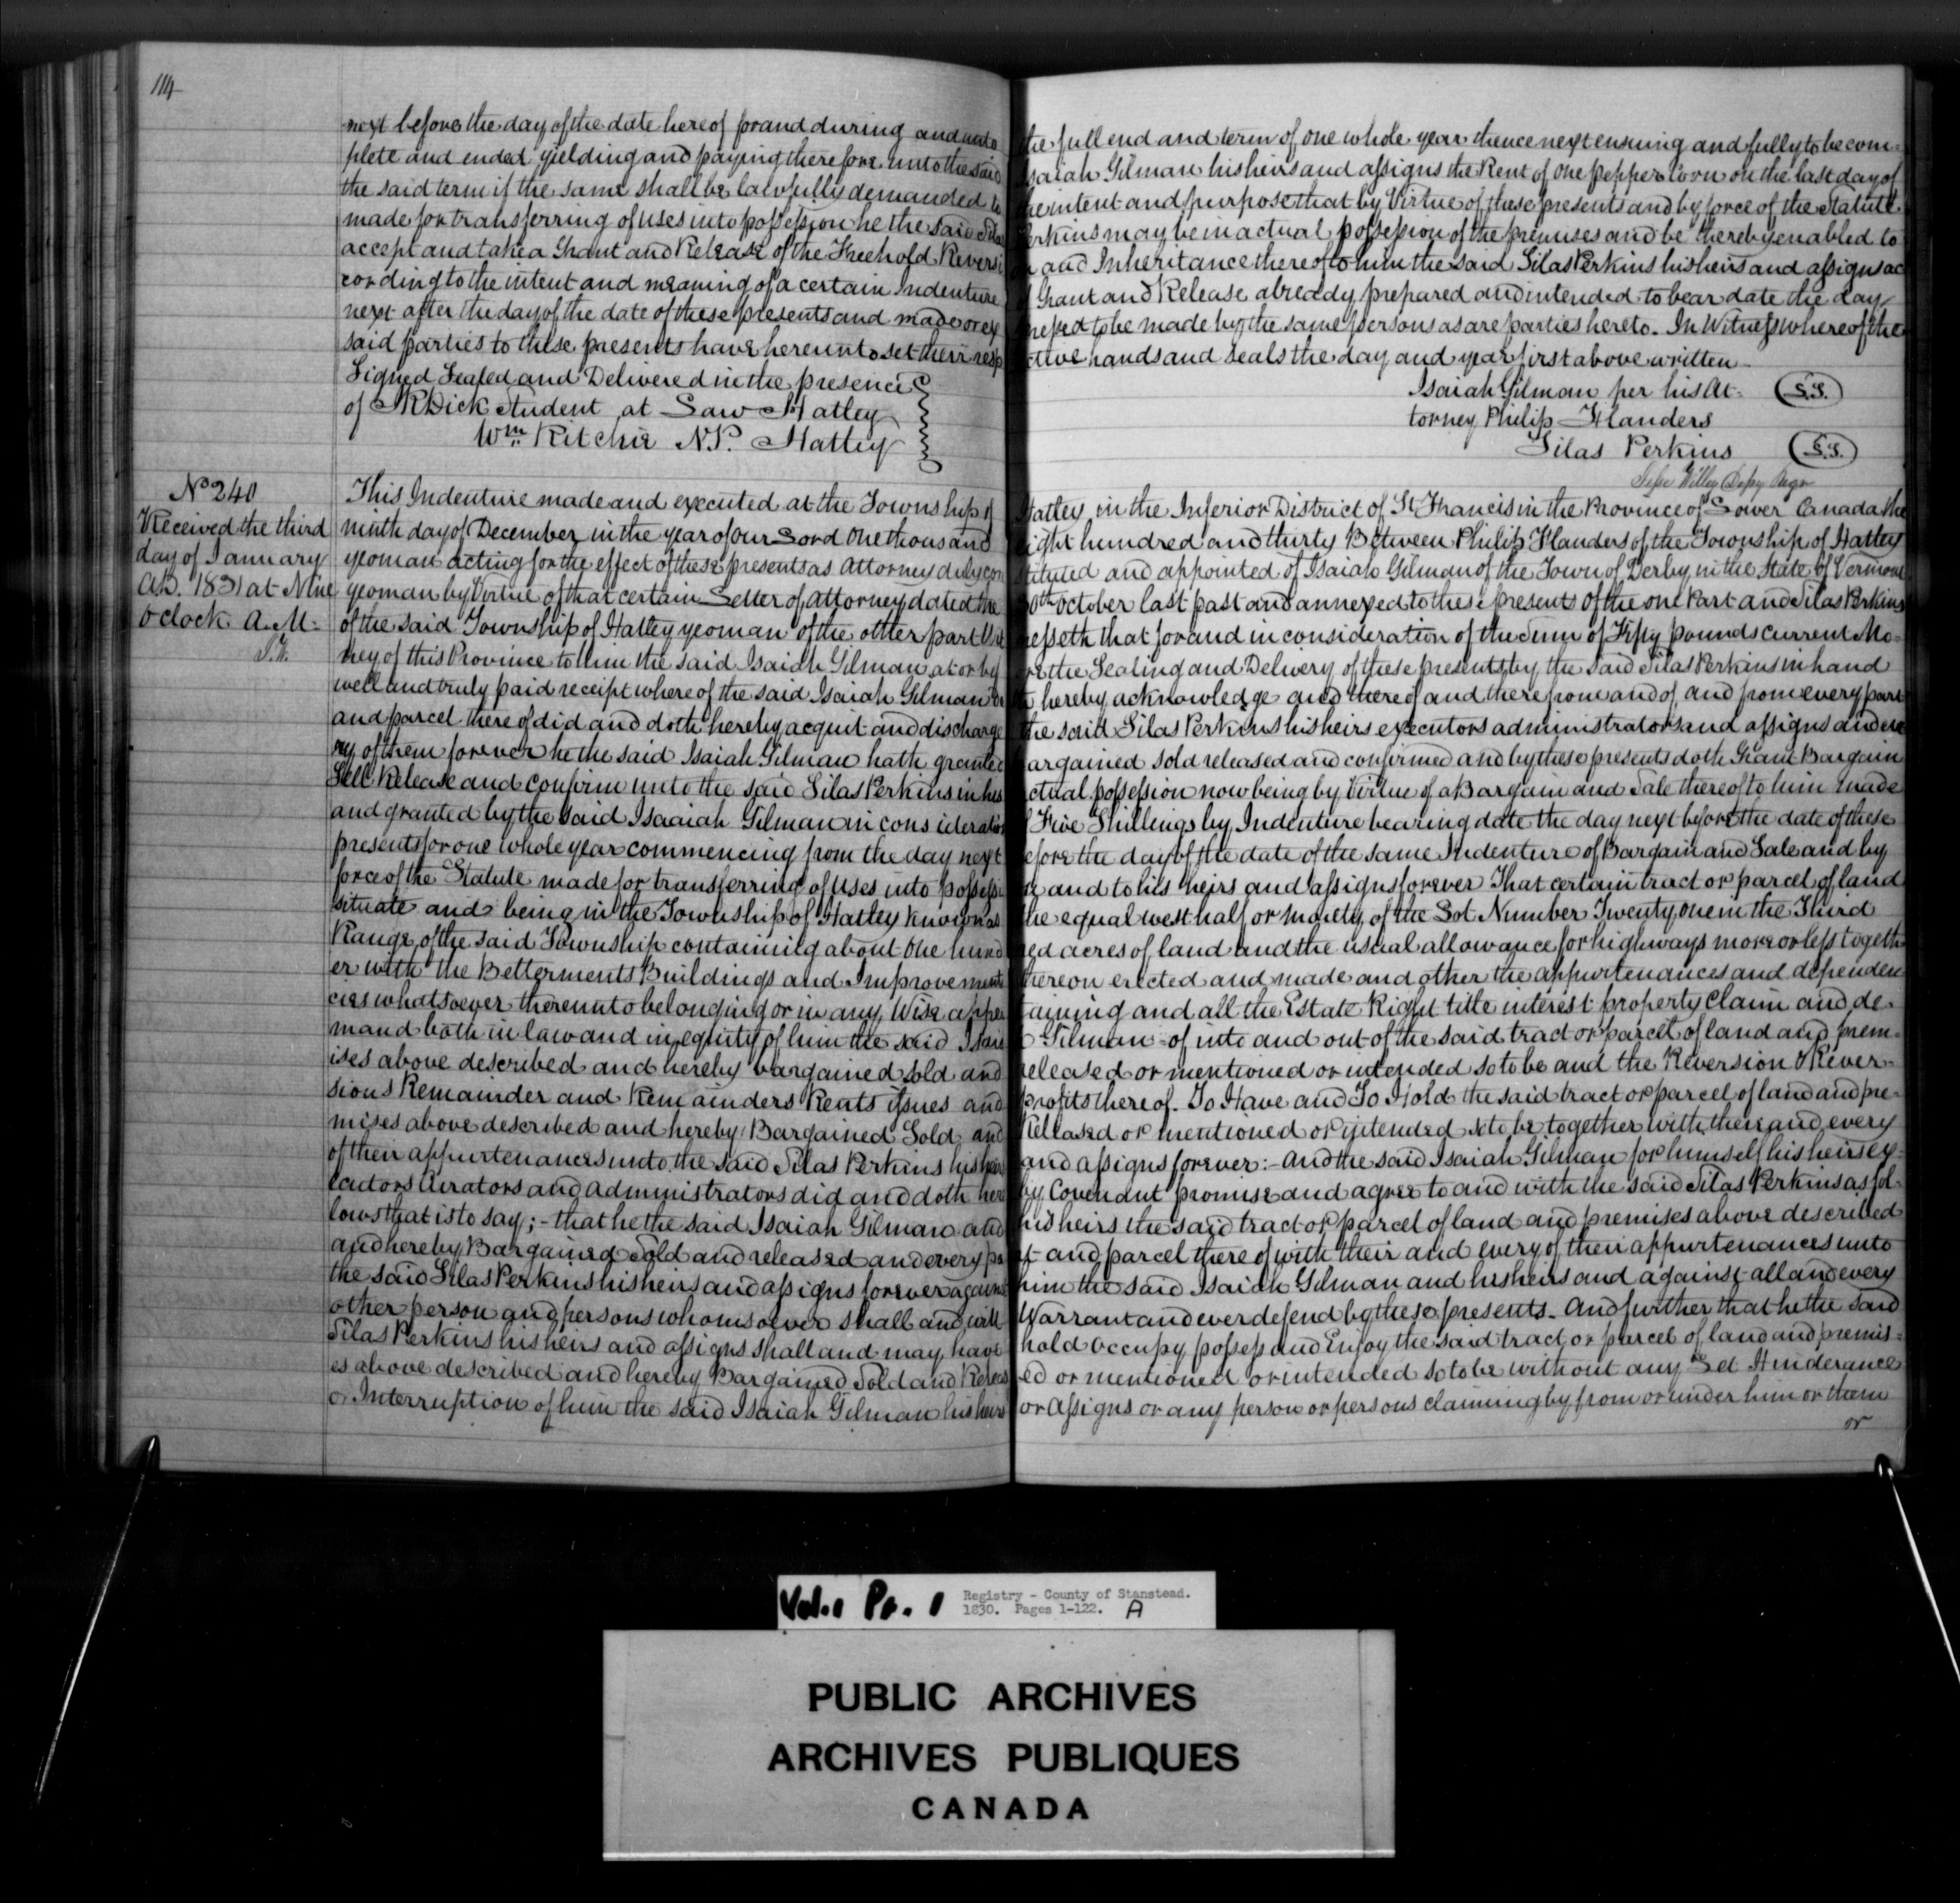 114
next before the day of the date hereof for and during and unto the full end and term of one whole year thence next ensuing and fully to be com-
plete and ended yielding and paying therefore unto the said Isaiah Gilman his heirs and assigns the Rent of one pepper Corn on the last day of
the said term if the same shall be lawfully demanded to the intent and purpose that by Virtue of these presents and by force of the Statute
made for transferring of uses into possession he the said Silas Perkins may be in actual possession of the premises and be thereby enabled to
accept and take a Grant and Release of the Freehold Reversion and Inheritance thereof to him the said Silas Perkins his heirs and assigns ac
cording to the intent and meaning of a certain Indenture of Grant and Release already prepared and intended to bear date the day
next after the day of the date of these presents and made or expressed to be made by the same persons as are parties hereto. In Witness whereof the
said parties to these presents have hereunto set their respective hands and seals the day and year first above written
Signed Sealed and Delivered in the presence
of Dick Student at Law Hatley
Wm Ritchie N.P. Hatley
Isaiah Gilman per his At-
torney Philip Flanders
L.S.
Silas Perkins L.S.
Willey Depy Regr
No 240
Received the third
day of January
A.D. 1831 at Nine
o'clock A.M.
This Indenture made and executed at the Township of Hatley in the Inferior District of St Francis in the Province of Lower Canada the
ninth day of December in the year of our Lord One thousand eight hundred and thirty Between Philip Flanders of the Township of Hatley
yeoman acting for the effect of these presents as Attorney duly constituted and appointed of Isaiah Gilman of the Town of Derby in the State of Vermont
yeoman by Virtue of that certain Letter of Attorney dated the October last past and annexed to these presents of the one Part and Silas Perkins
of the said Township of Hatley yeoman of the other part Witnesseth that for and in consideration of the Sum of Fifty pounds current Mo-
ney of this Province to him the said Isaiah Gilman at or before the Sealing and Delivery of these presents by the said Silas Perkins in hand
well and truly paid receipt whereof the said Isaiah Gilman doth hereby acknowledge and thereof and therefrom and of and from every part
and parcel thereof did and doth hereby acquit and discharge the said Silas Perkins his heirs executors administrators and assigns and eve
ry of them forever he the said Isaiah Gilman hath granted bargained sold released and confirmed and by these presents doth Grant Bargain
Sell Release and Confirm unto the said Silas Perkins in his actual possession now being by Virtue of a Bargain and Sale thereof to him made
and granted by the said Isaaiah Gilman in consideration of Five Shillings by Indenture bearing date the day next before the date of these
presents for one whole year commencing from the day next before the day of the date of the same Indenture of Bargain and Sale and by
force of the Statute made for transferring of uses into possession and to his heirs and assigns forever That certain tract or parcel of land
situate and being in the Township of Hatley known as the equal west half or moiety of the Lot Number Twenty one in the Third
Range of the said Township containing about One hundred acres of land and the usual allowance for highways more or less togeth
er with the Betterments Buildings and Improvements thereon erected and made and other the appurtenances and dependen
cies whatsoever thereunto belonging or in any Wise appertaining and all the Estate Right title interest property Claim and de-
mand both in law and in equity of him the said Isaiah Gilman - of into and out of the said tract or parcel of land and prem-
ises above described and hereby bargained sold and released or mentioned or intended so to be and the Reversion & Rever-
sions Remainder and Remainders Rents issues and profits thereof. To Have and To Hold the said tract or parcel of land and pre-
mises above described and hereby Bargained Sold and Released or mentioned or intended so to be together with their and every
of their appurtenances unto the said Silas Perkins his heirs and assigns forever:- And the said Isaiah Gilman for himself his heirs ex-
ecutors Curators and Administrators did and doth hereby Covenant promise and agree to and with the said Silas Perkins as fol-
lows that is to say; - that he the said Isaiah Gilman and his heirs the said tract or parcel of land and premises above described
and hereby Bargained Sold and released and every part and parcel thereof with their and every of their appurtenances unto
the said Silas Perkins his heirs and assigns forever against him the said Isaiah Gilman and his heirs and against all and every
other person and persons whomsoever shall and will Warrant and ever defend by these presents - And further that he the said
Silas Perkins his heirs and assigns shall and may have hold occupy possess and Enjoy the said tract or parcel of land and premis-
es above described and hereby Bargained Sold and Released or mentioned or intended so to be without any Let Hinderance
or Interruption of him the said Isaiah Gilman his heirs or Assigns or any person or persons claiming by from or under him or them
or
Vol. 1 Pt. 1 Registry - County of Stanstead.
1830. Pages 1-122. A
PUBLIC ARCHIVES
ARCHIVES PUBLIQUES
CANADA